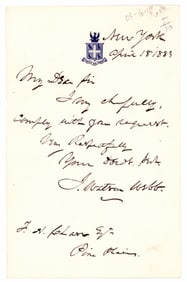 New York
April 18 1883
My Dear Sir
I very cheerfully
comply with your request.
Very Respectfully
Your Obdt. Svt.
J. Watson Webb
Esqr
Pine Plains.